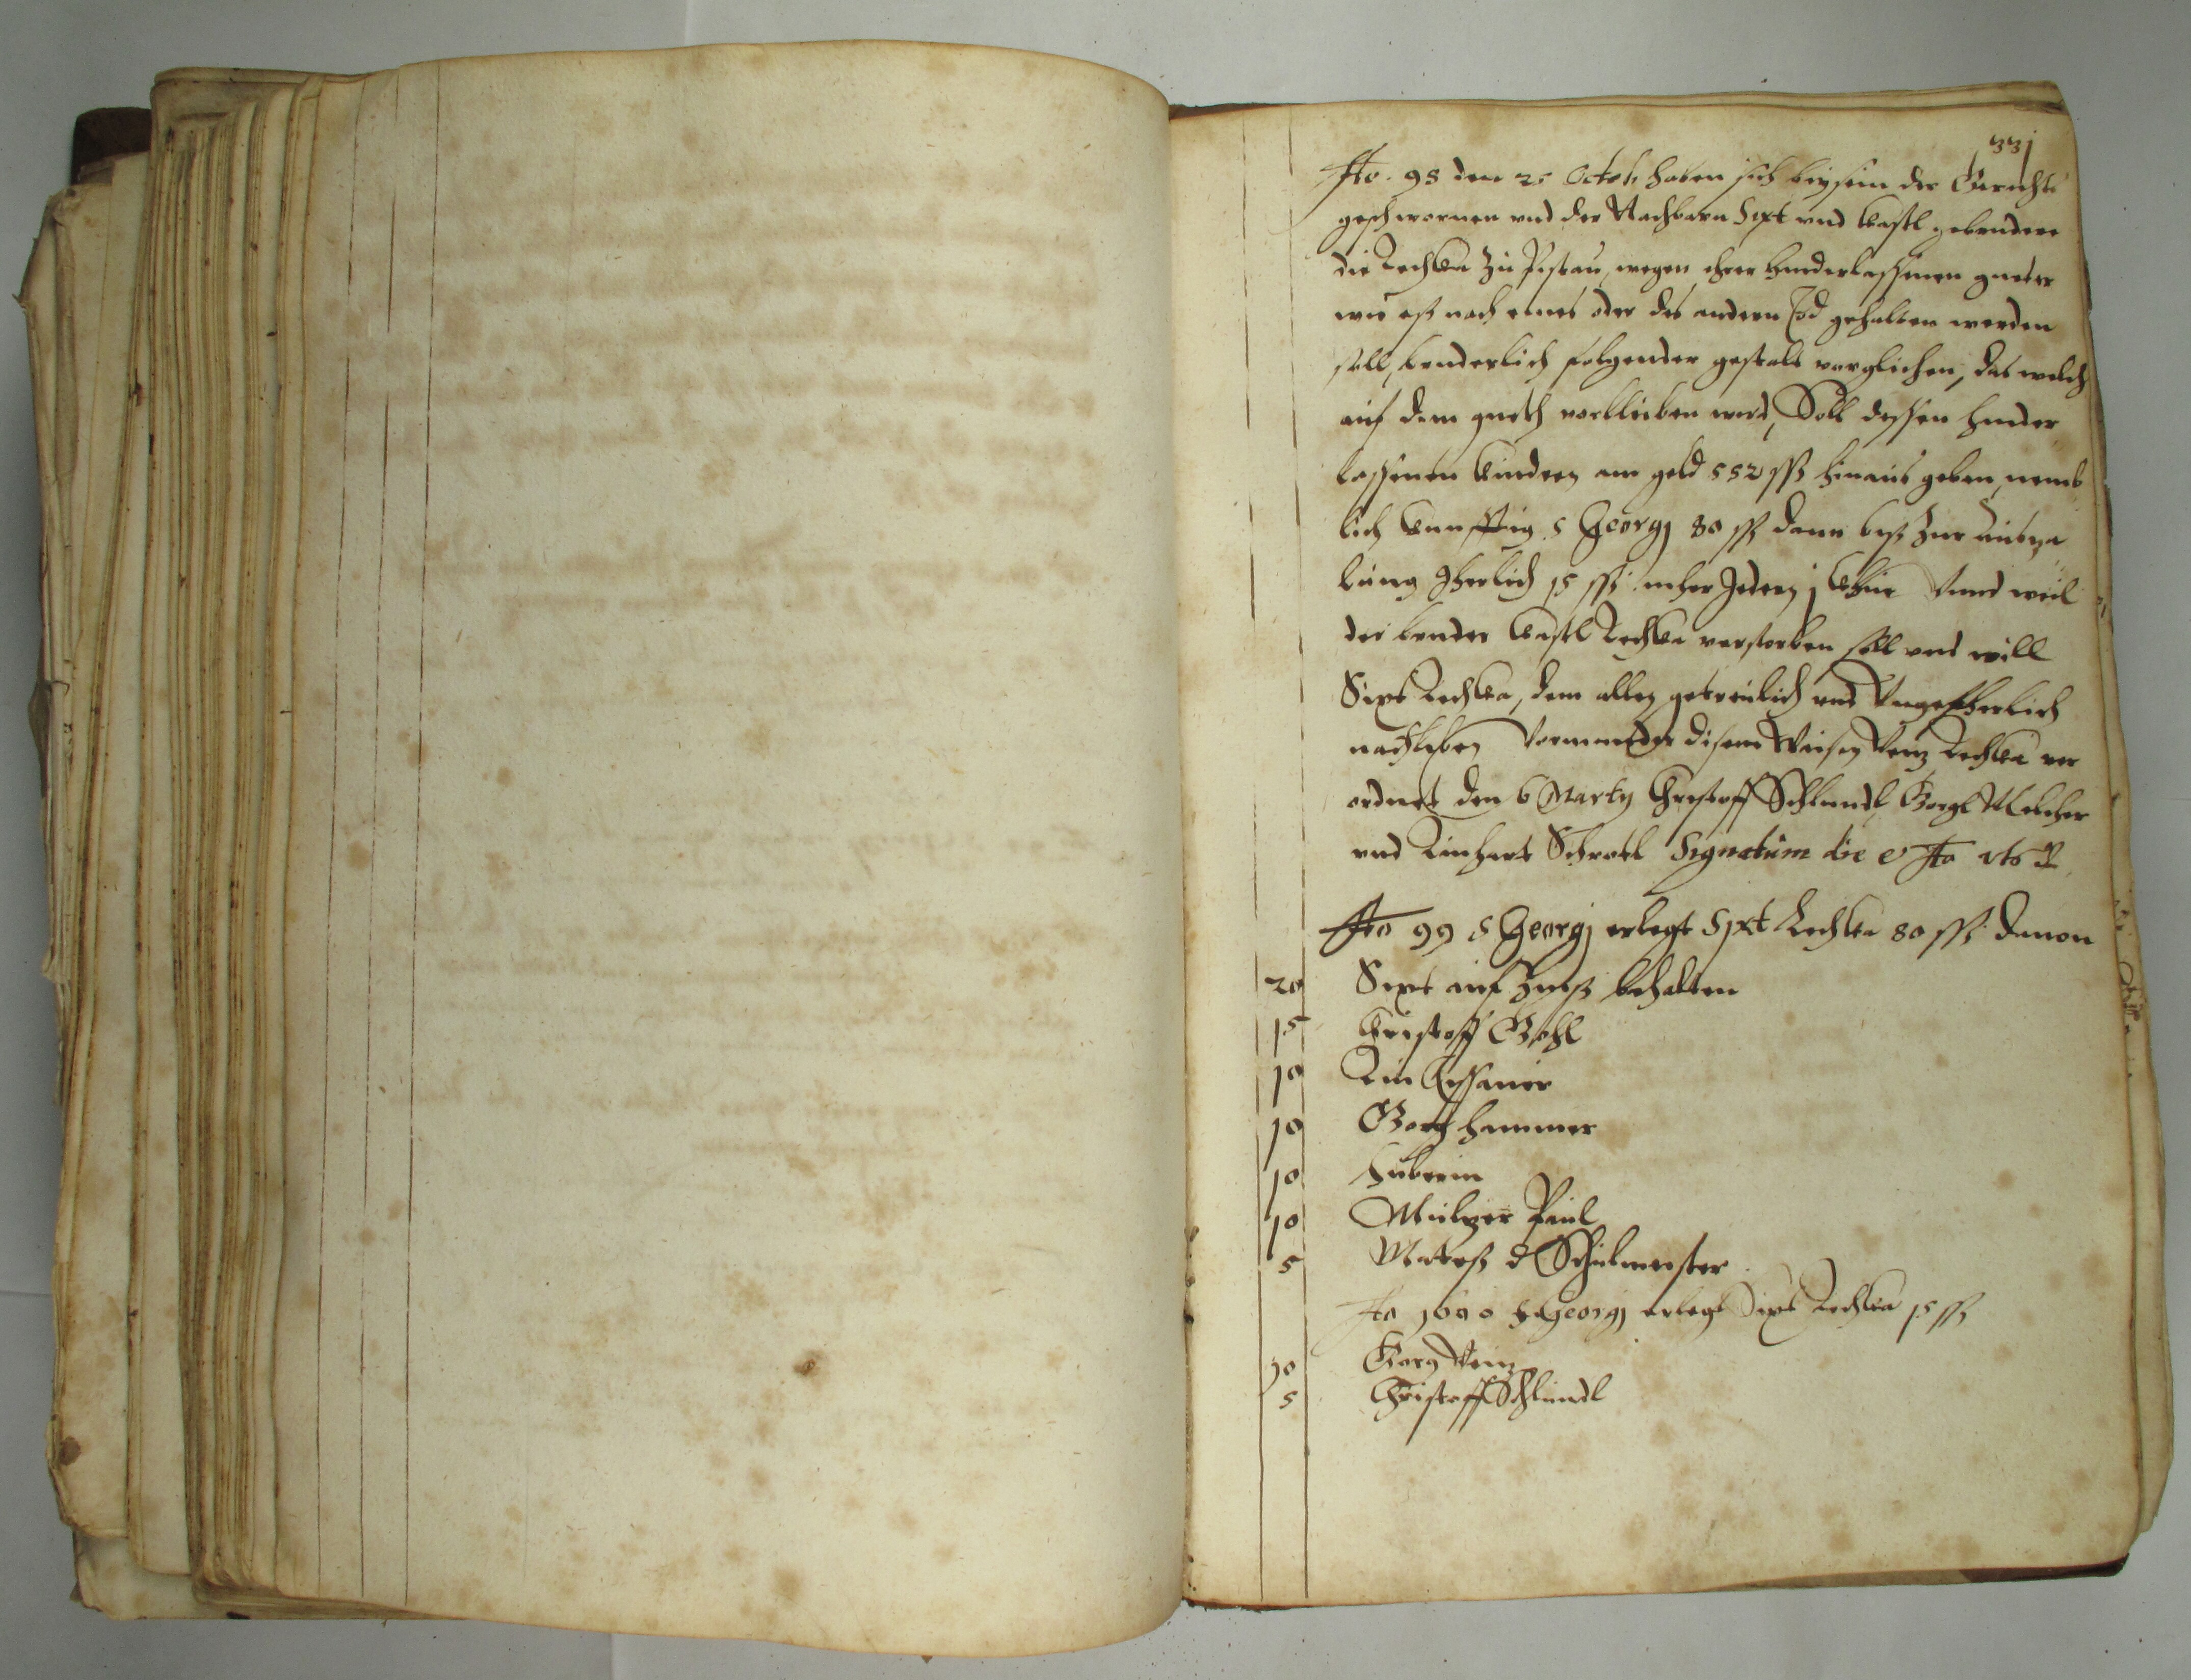 331
Ao. 98 den 25 Octob: haben sich beysein der Gericht
geschwornen vnd der Nachbarn Sixt vnd Castl gebrudere
die Lechka zu Pistau, wegen ihrer hinderlassenen gueter
wie eß nach eines oder des andern Tod gehalten werden
soll, bruderlich folgender gestalt verglichen, das welch
auf dem gueth verbleiben wird, Soll dessen hinder
lassenen kindern an geld 552 ss hinaus geben, nemb
lich kunfftig S Georgj 80 ss dann biß zur außza
lung Jherlich 15 ss mher Jedem j khue Vnnd weil
der bruder Castl Lechka verstorben soll vnd will
Sixt Lechka, dem allen getreulich vnd Vngeferlich
nachleben Vormunder disem Waisen Lechka ver
ordnet den 6 Marty Christoff Schlundl, Georgl Melcher
vnd Linhart Schrotl Signatum die et Ao vts
Ao 99 S Georgj erlegt Sixt Lechka 80 ss dauon
20 Sixt auf Zinß behalten
15 Cristoff Gohl
10 Lin
10 Georg Hammer
10 Huberin
10 Mulzer Paul
5 Mateß d Schulmeister
Ao 1600 S Georgj erlegt Sixt Lechka 15 ss
10 Georg
5 Christoff Schlundl